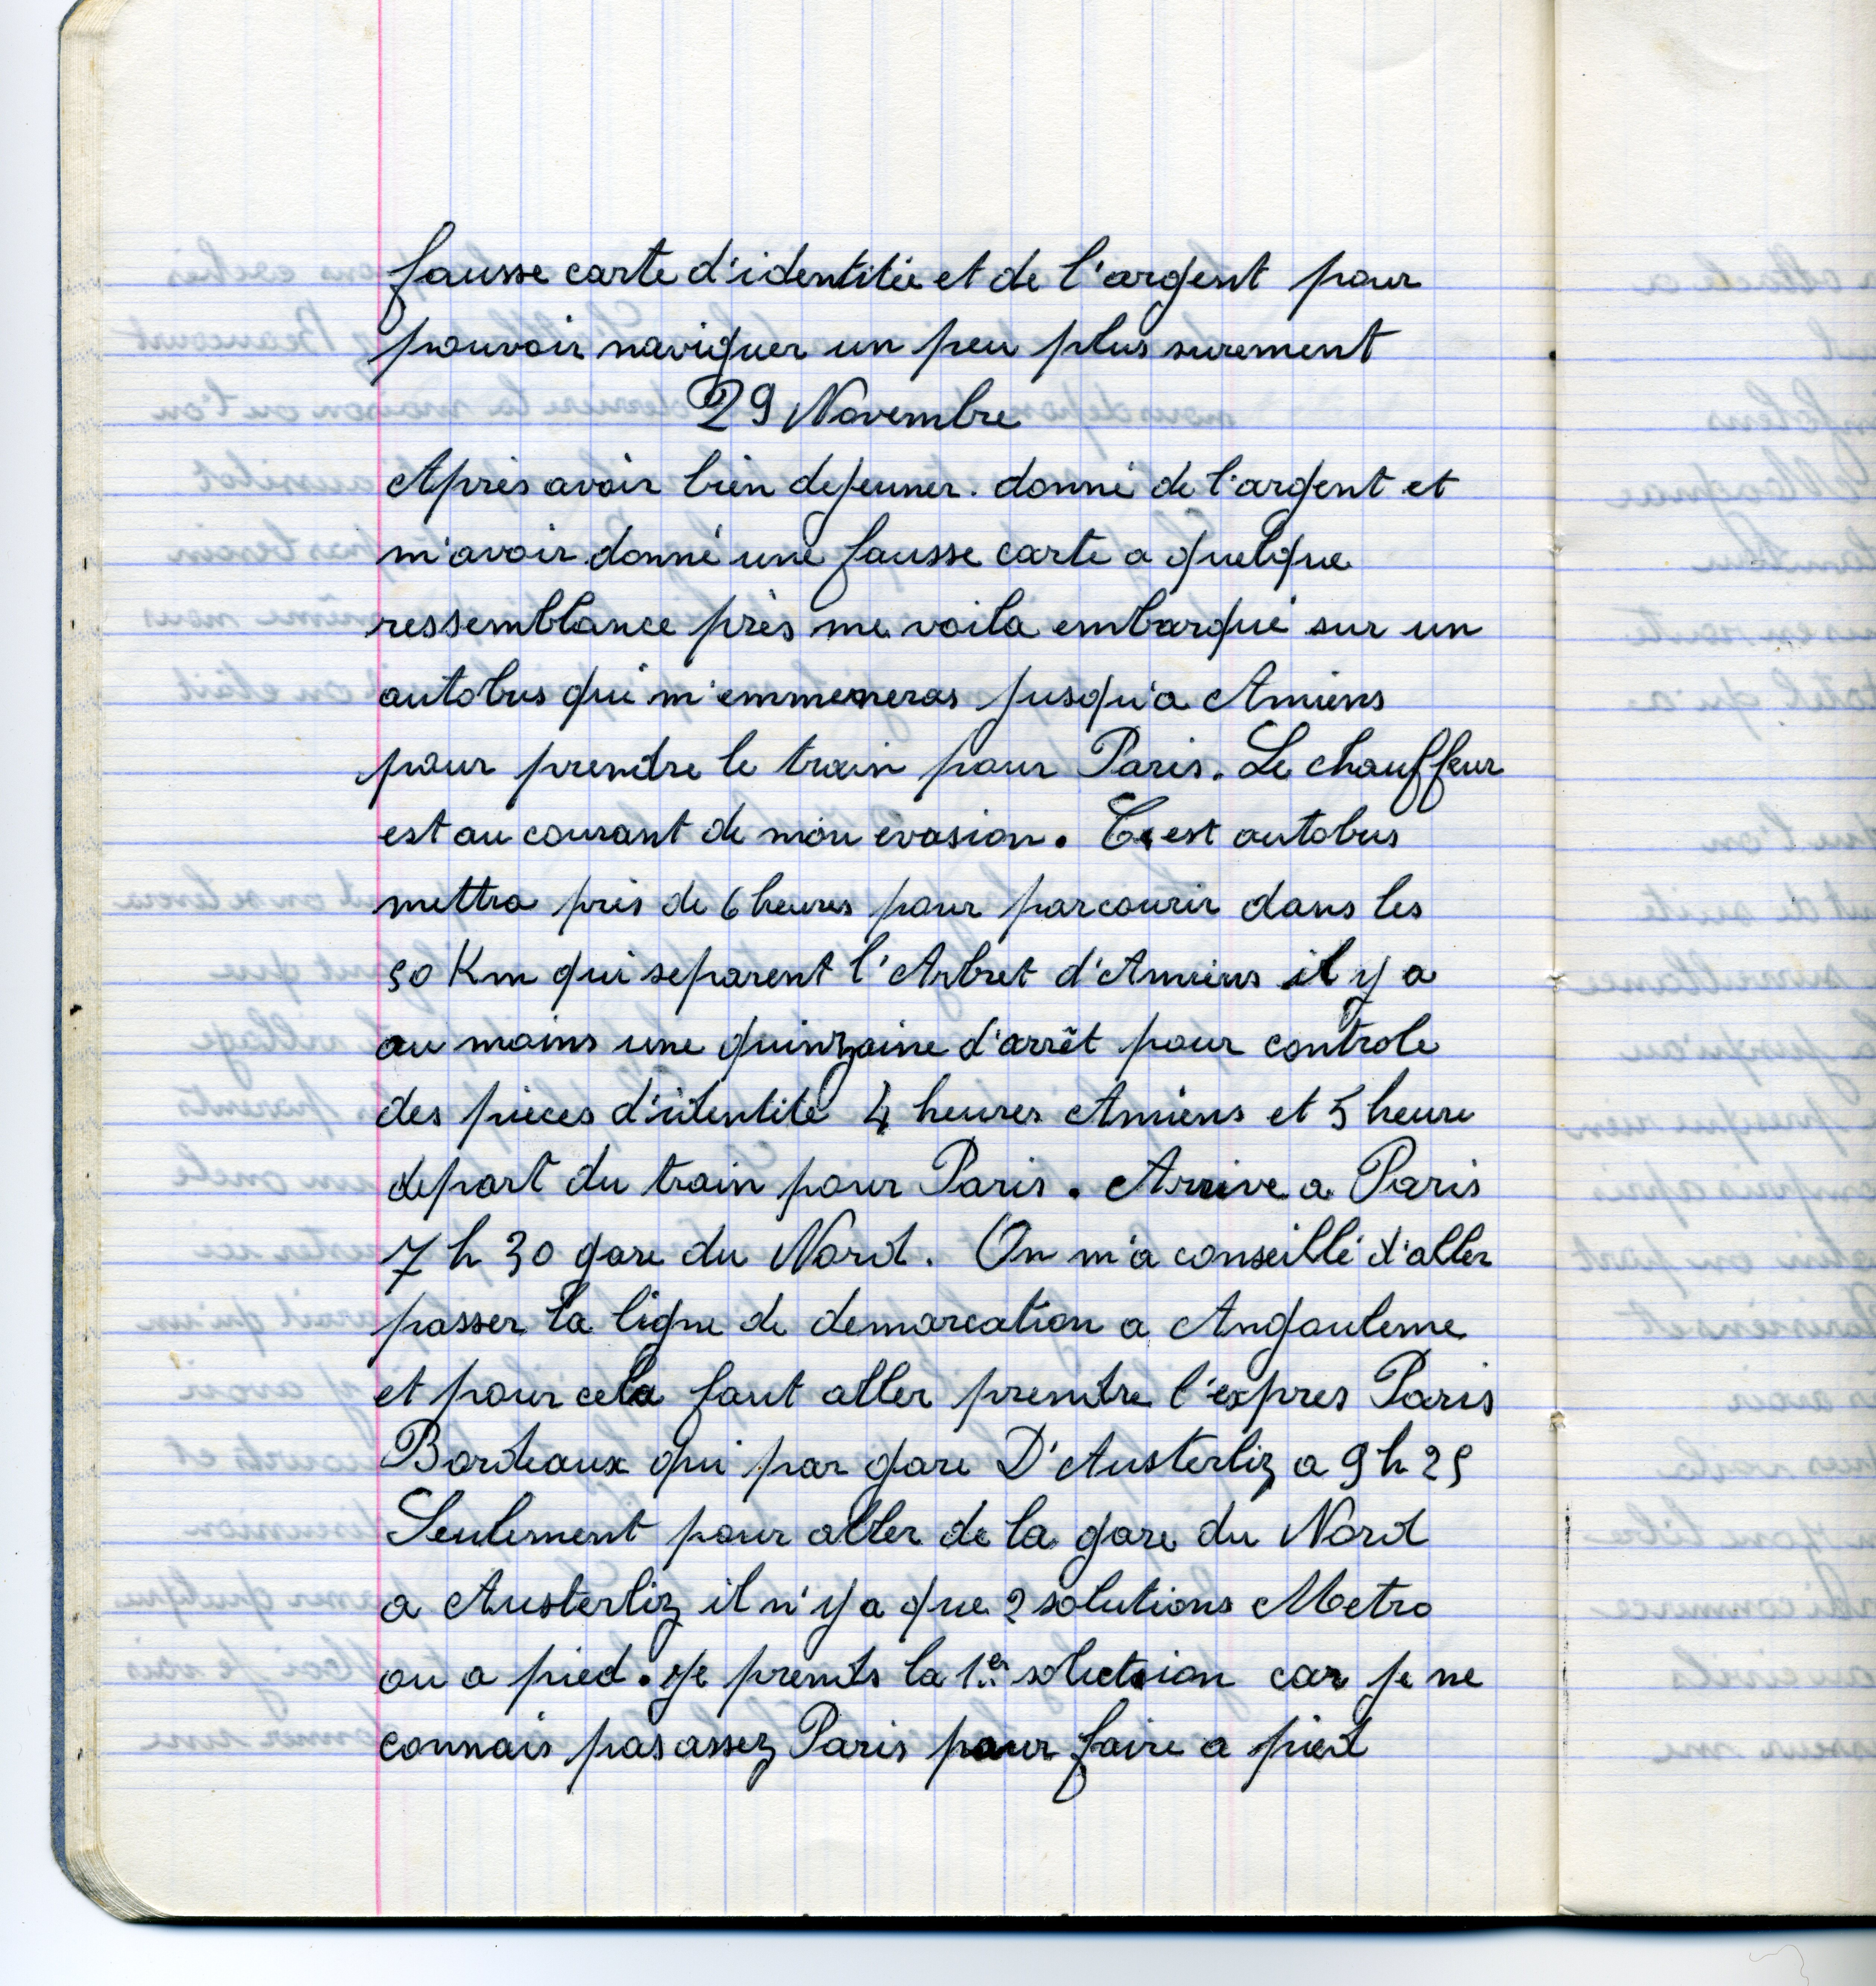 fausse carte d'identitée et de l'argent pour
pouvoir naviguer un peu plus surement
29 Novembre
Après avoir bien dejeuner. donné de l'argent et
m'avoir donné une fausse carte a quelque
ressemblance près me voila embarqué sur un
autobus qui m'emmeneras jusqu'a Amiens
pour prendre le train pour Paris. Le chauffeur
est au courant de mon evasion. C'est autobus
mettra près de 6 heures pour parcourir dans les
50 Km qui separent l'Arbret d'Amiens il y a
au moins une quinzaine d'arrêt pour controle
des pièces d'identité 4 heures Amiens et 5 heure
depart du train pour Paris. Arrive a Paris
7 h 30 gare du Nord. On m'a conseillé d'aller
passer la ligne de demarcation a Angouleme
et pour cela faut aller prendre l'expres Paris
Bordeaux qui par gare D'Austerliz a 9 h 25
Seulement pour aller de la gare du Nord
a Austerliz il n'y a que 2 solutions Metro
ou a pied. Je prends la 1er solution car je ne
connais pas assez Paris pour faire a pied